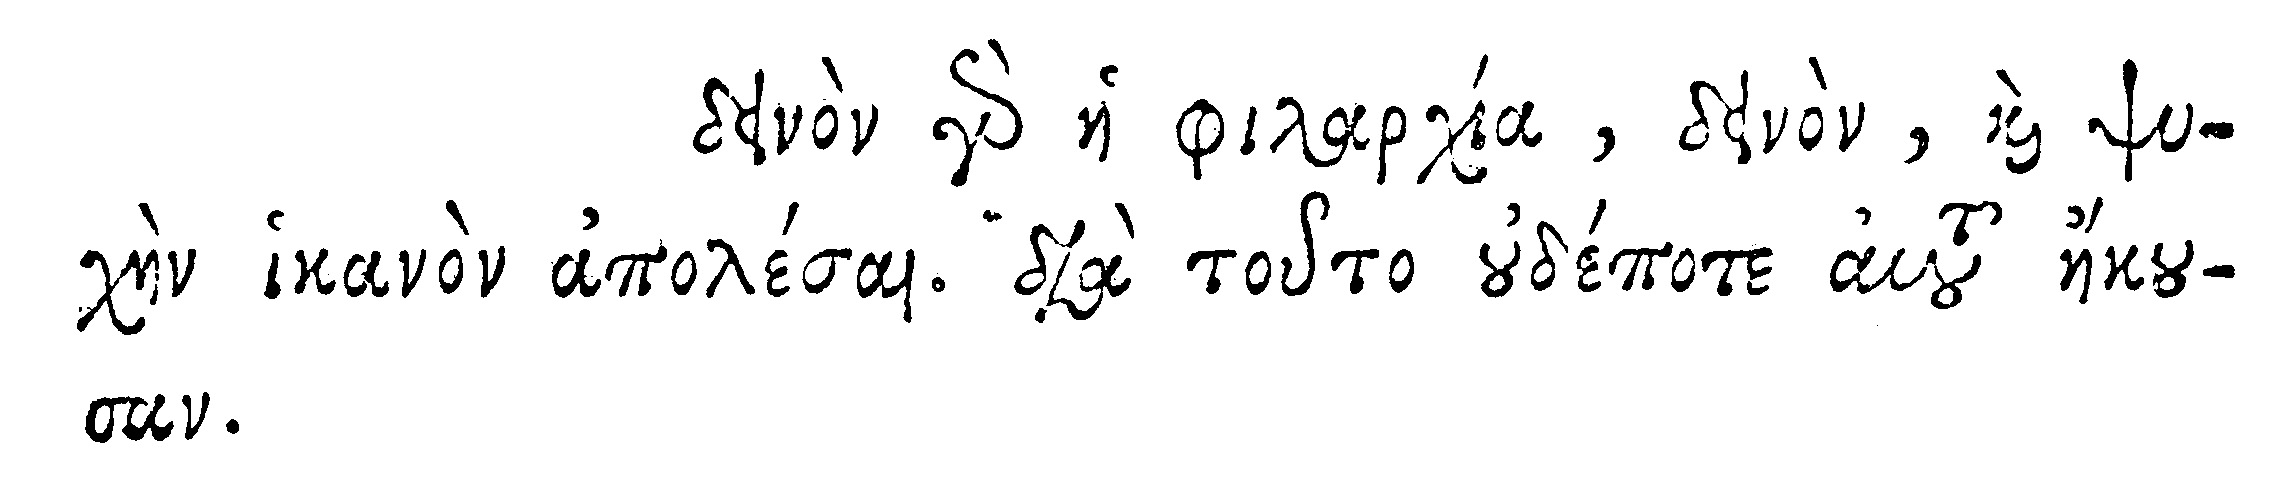 δεινὸν γὰρ ἡ φιλαρχία, δεινὸν, καὶ ψυ-
χὴν ἱκανὸν ἀπολέσαι. διὰ τοῦτο οὐδέποτε αὐτοῦ ἤκου-
σαν.